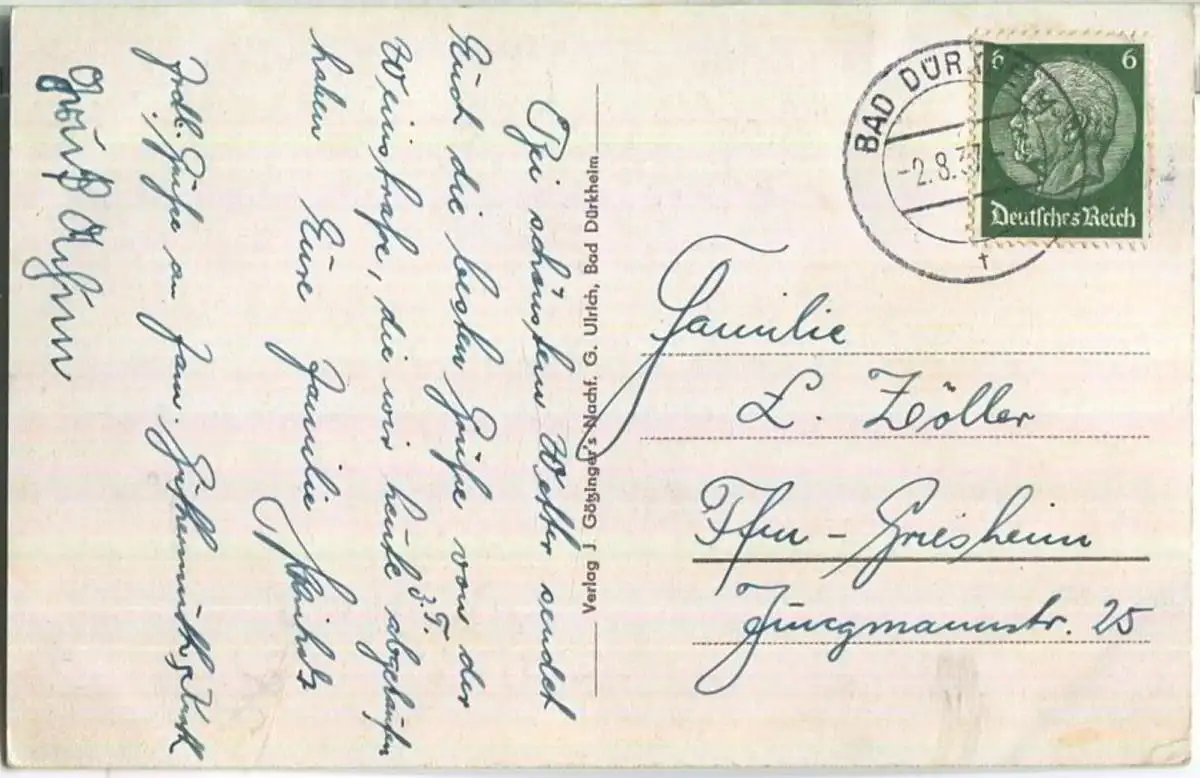 Bei schönstem Wetter sendet
Euch die besten Grüße von der
Weinstraße, die wir heute z.T. abgelaufen
haben Eure Familie
Frdl. Grüße an Fam.
Gruß
Verlag J. Götzinger's Nachf. G. Ulrich, Bad Dürkheim
BAD DÜRKHEIM
-2.8.37-
6 6
Deutsches Reich
Familie
L. Zöller
Ffm - Griesheim
Jungmannstr. 25